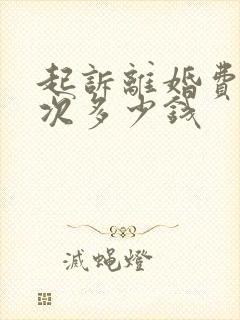 起訴離婚費
次多少錢
滅蠅燈